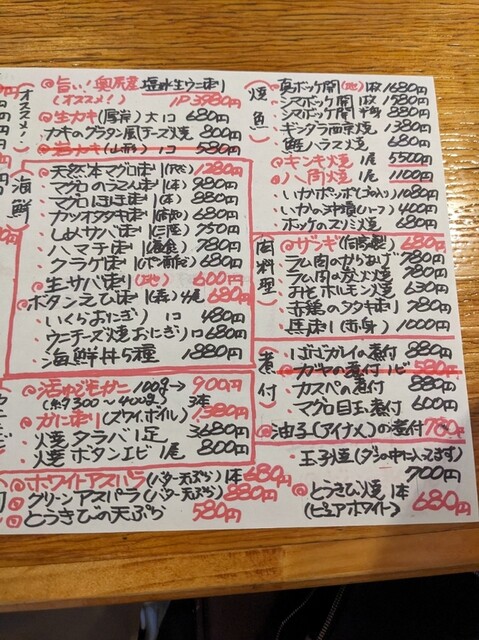 オススメ!
海鮮
旨い!奥尻産 塩水生ウニ刺
(オススメ!) 1P 3980円
生カキ(厚岸)大1コ 680円
カキのグラタン風チーズ焼 800円
岩カキ(山形)1コ 580円
天然本マグロ刺 1280円
マグロのうてん刺(本) 980円
マグロほほ刺(本) 880円
カツオタタキ刺 680円
しめサバ刺 750円
ハマチ刺 780円
クラゲ刺 680円
生サバ刺(地) 600円
ボタンえび刺 4尾 680円
いくらおにぎり 1コ 480円
ウニチーズ焼おにぎり1コ 680円
海鮮丼5種 1880円
活毛ガニ 100g→ 900円
(約300〜400g)
かに刺(ズワイボイル) 3本 1380円
焼タラバ1足 3680円
焼ボタンエビ1尾 800円
ホワイトアスパラ(バター・天ぷら)1本 680円
グリーンアスパラ(バター・天ぷら) 880円
とうきびの天ぷら 580円
焼魚
真ホッケ開(地)1枚 1680円
シマホッケ開1枚 1580円
シマホッケ開半身 880円
ギンダラ西京焼 1380円
鮭ハラス焼 680円
キンキ焼 1尾 5500円
八角焼 1尾 1100円
いかポッポ 1080円
いかの沖漬(ハーフ) 400円
ホッケのスパ焼 680円
肉料理
ザンギ 680円
ラム肉のからあげ 780円
ラム肉の炭火焼 780円
みそホルモン焼 630円
赤鶏のタタキ刺 780円
馬刺(赤身) 1000円
煮付
ババガレイの煮付 880円
ガヤの煮付 1ピ 580円
カスベの煮付 880円
マグロ目玉煮付 600円
油子(アイナメ)の煮付 780円
玉子焼(ダシの中に入ってます)
700円
とうきび焼1本 680円
(ピュアホワイト)